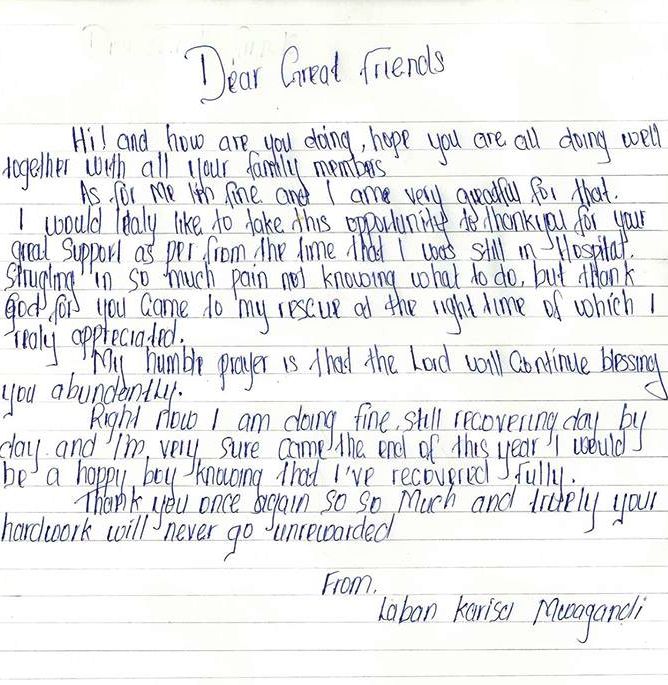 Dear Great friends
Hi! and how are you doing, hope you are all doing well
together with all your family members
As for Me I'm fine and I ame very greadful for that.
I would realy like to take this opportunity to thankyou for your
great support as per from the time that I was still in Hospital.
Strugling in so much pain not knowing what to do, but thank
God for you came to my rescue at the right time of which I
realy appreciated.
My humble prayer is that the Lord will continue blessing
you abundantly.
Right Now I am doing fine, still recovering day by
day and I'm very sure came the end of this year I would
be a happy boy knowing that I've recovered fully.
Thank you once again so so Much and truely your
hardwork will never go unrewarded
From,
Laban Karisa Mwagandi